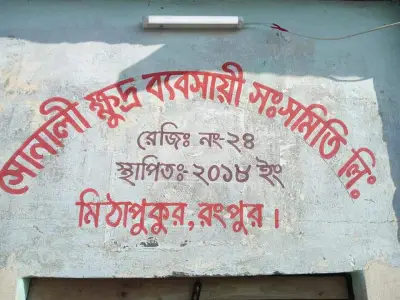 সোনালী ক্ষুদ্র ব্যবসায়ী সঃসমিতি লিঃ
রেজিঃ নং-২৪
স্থাপিতঃ-২০১৮ ইং
মিঠাপুকুর, রংপুর।